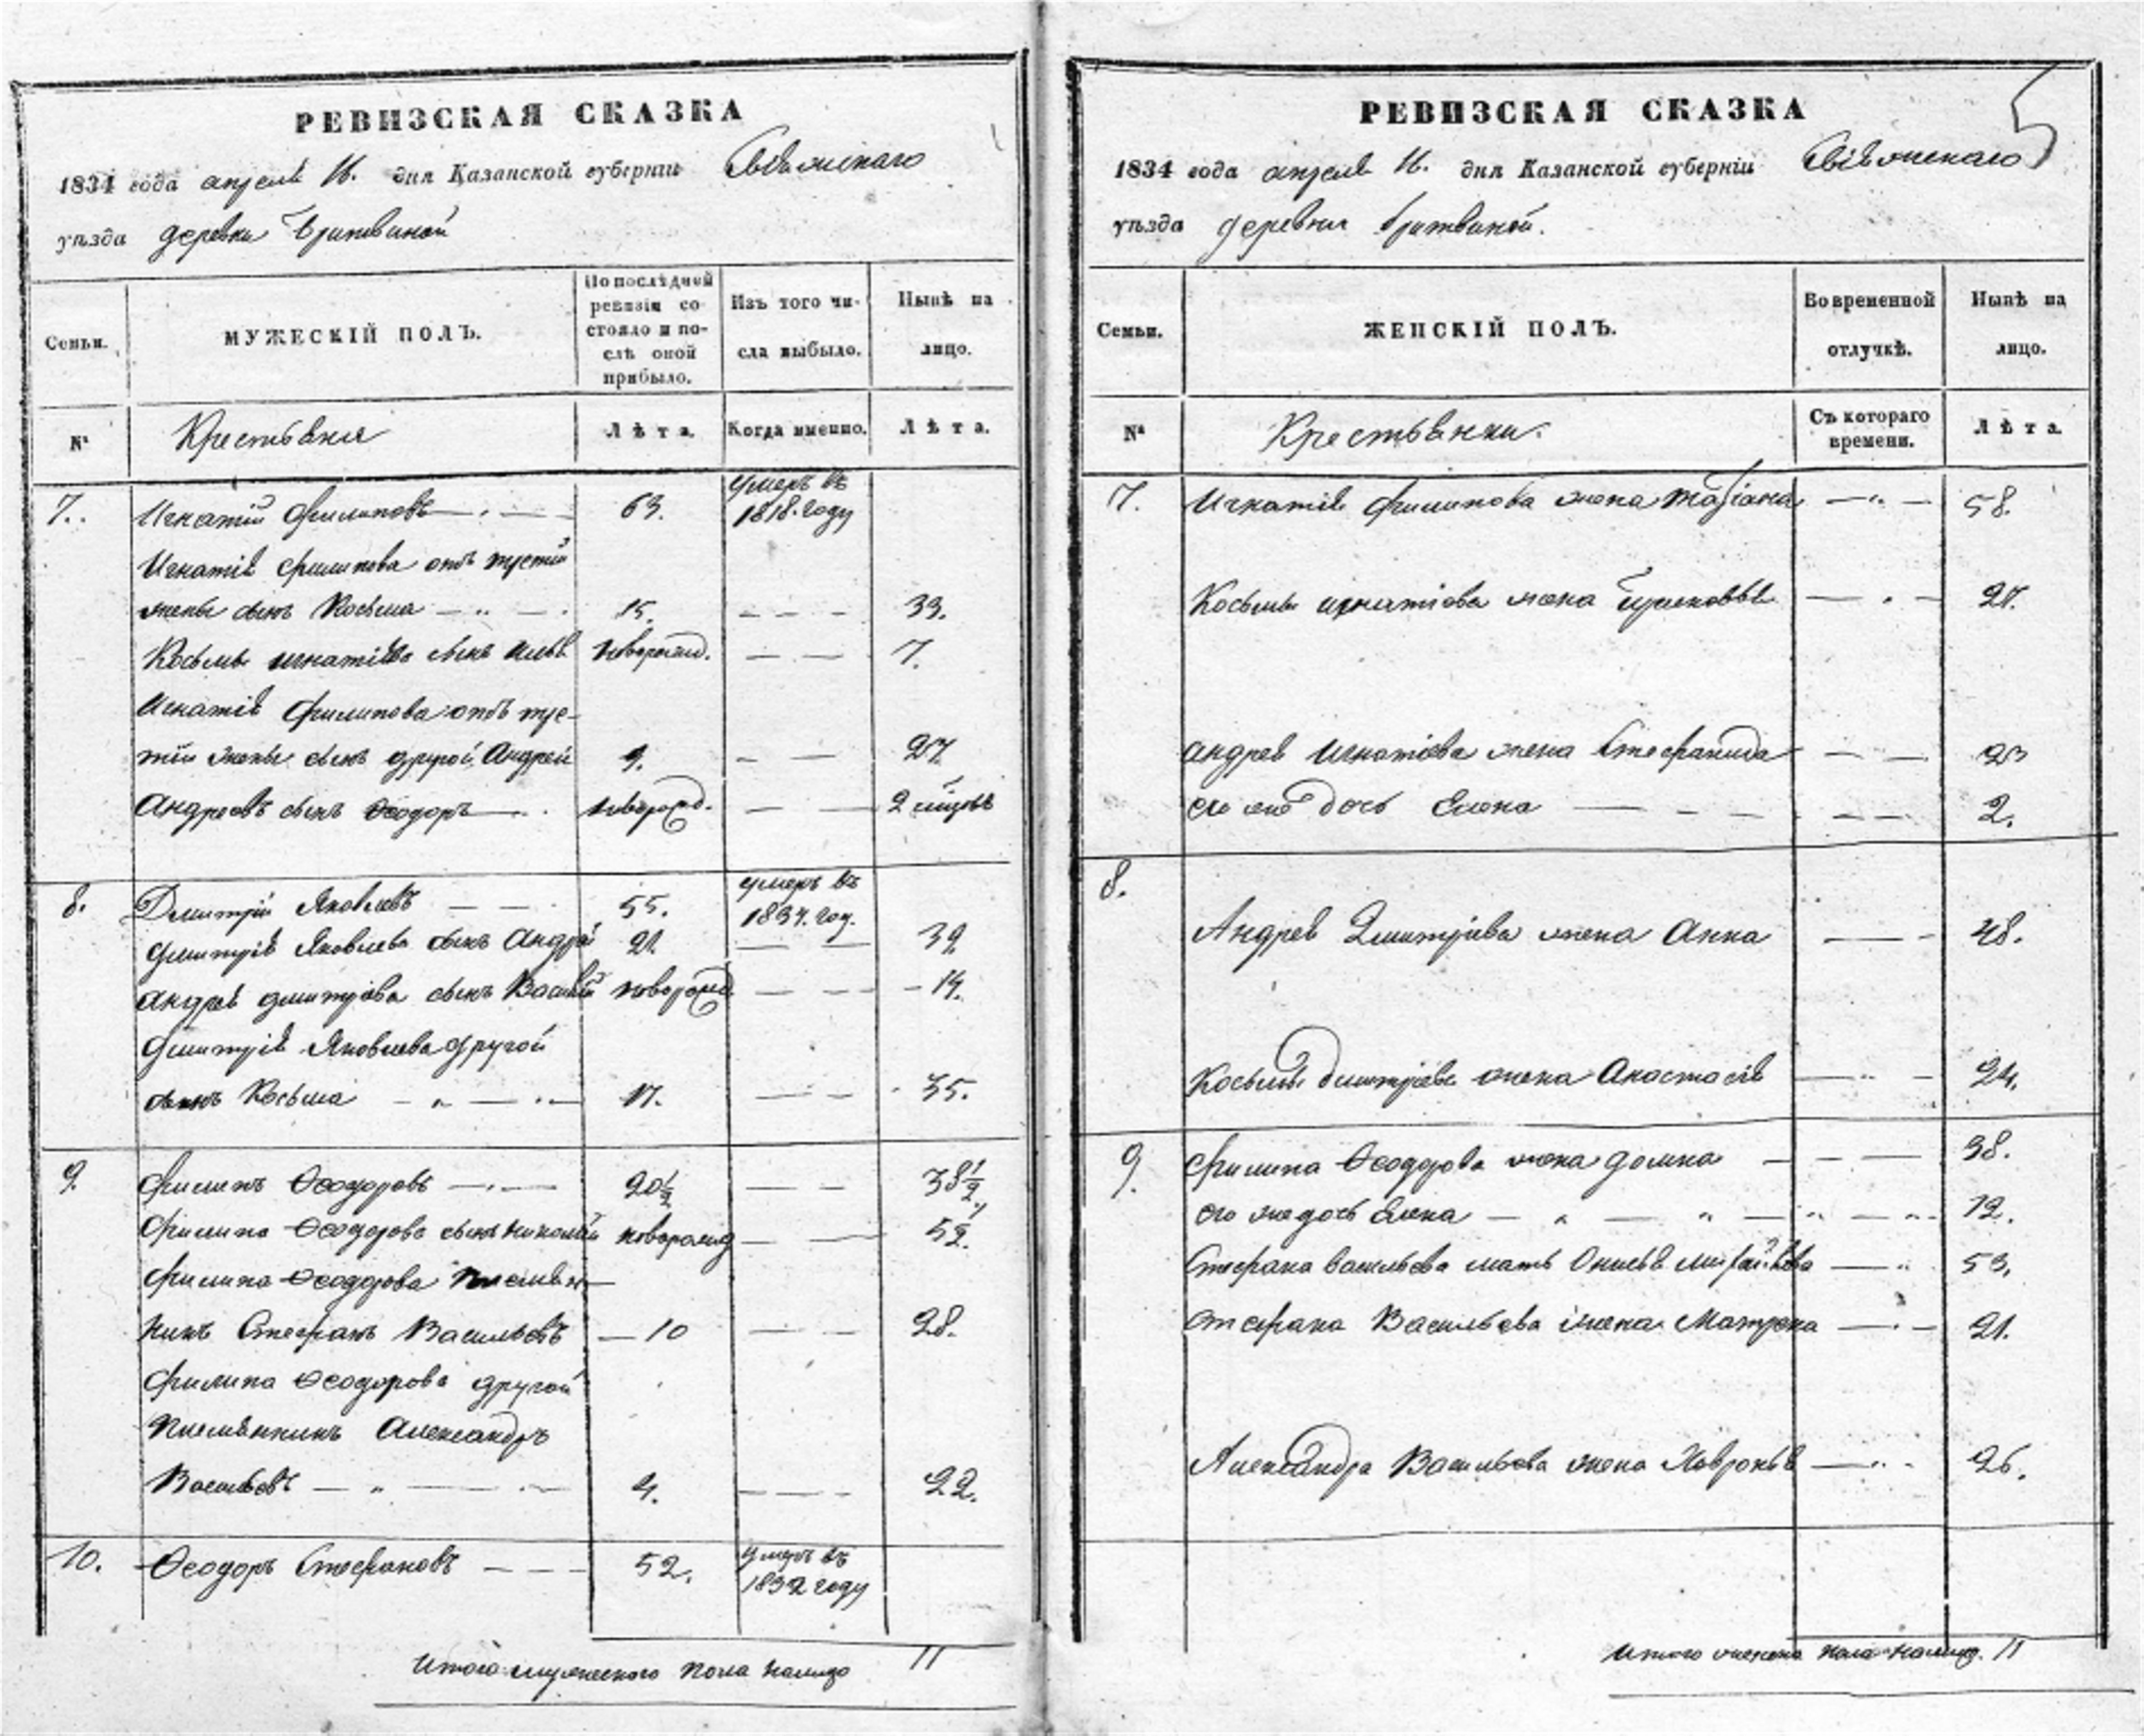 РЕВИЗСКАЯ СКАЗКА
1834 года апреля 16. дня Казанской губерніи Свіяжскаго
уѣзда деревни Бритвиной
Семьи.
МУЖЕСКІЙ ПОЛЪ.
По послѣдней
ревизіи со-
стояло и по-
слѣ оной
прибыло.
Изъ того чи-
сла выбыло.
Нынѣ на
лицо.
№
Крестьяня
Лѣта.
Когда именно.
Лѣта.
7. Игнатій Филиповъ 63. умеръ въ 1818. году
Игнатія Филипова отъ третій
жены сынъ Косьма 15. 33.
Косьмы Игнатіева сынъ Илья новорожд. 7.
Игнатія Филипова отъ тре-
тій жены сынъ другой Андрей 9. 27.
Андреевъ сынъ Ѳеодоръ новорожд. 2 мѣсяцов
8. Дмитрій Яковлевъ 55. умеръ въ 1834. год.
Дмитрія Яковлева сынъ Андрей 21. 39.
Андрея Дмитріева сынъ Василій новорожд. 14.
Дмитрія Яковлева другой
сынъ Косьма 17. 35.
9. Филипъ Ѳеодоровъ 20½ 38½
Филипа Ѳеодорова сынъ Николай новорожд 5½
Филипа Ѳеодорова племян-
никъ Стефанъ Васильевъ 10 28.
Филипа Ѳеодорова другой
племянникъ Александръ
Васильевъ 4. 22.
10. Ѳеодоръ Стефановъ 52. умеръ въ 1832 году
Итого мужескаго пола налицо 11
5
РЕВИЗСКАЯ СКАЗКА
1834 года апреля 16. дня Казанской губерніи Свіяжскаго
уѣзда деревни Бритвиной.
Семьи.
ЖЕНСКІЙ ПОЛЪ.
Во временной
отлучкѣ.
Нынѣ на
лицо.
№
Крестьянки.
Съ котораго
времени.
Лѣта.
7. Игнатія Филипова жена Татіана 58.
Косьмы Игнатіева жена 27.
Андрея Игнатіева жена Стефанида 23
его же дочь Елена 2.
8.
Андрея Дмитріева жена Анна 48.
Косьмы Дмитріева жена Анастасія 24.
9. Филипа Ѳеодорова жена Домна 38.
его же дочь Елена 12.
Стефана Васильева мать 53.
Стефана Васильева жена Матрена 21.
Александра Васильева жена Хавронья 26.
Итого женска пола налицо. 11